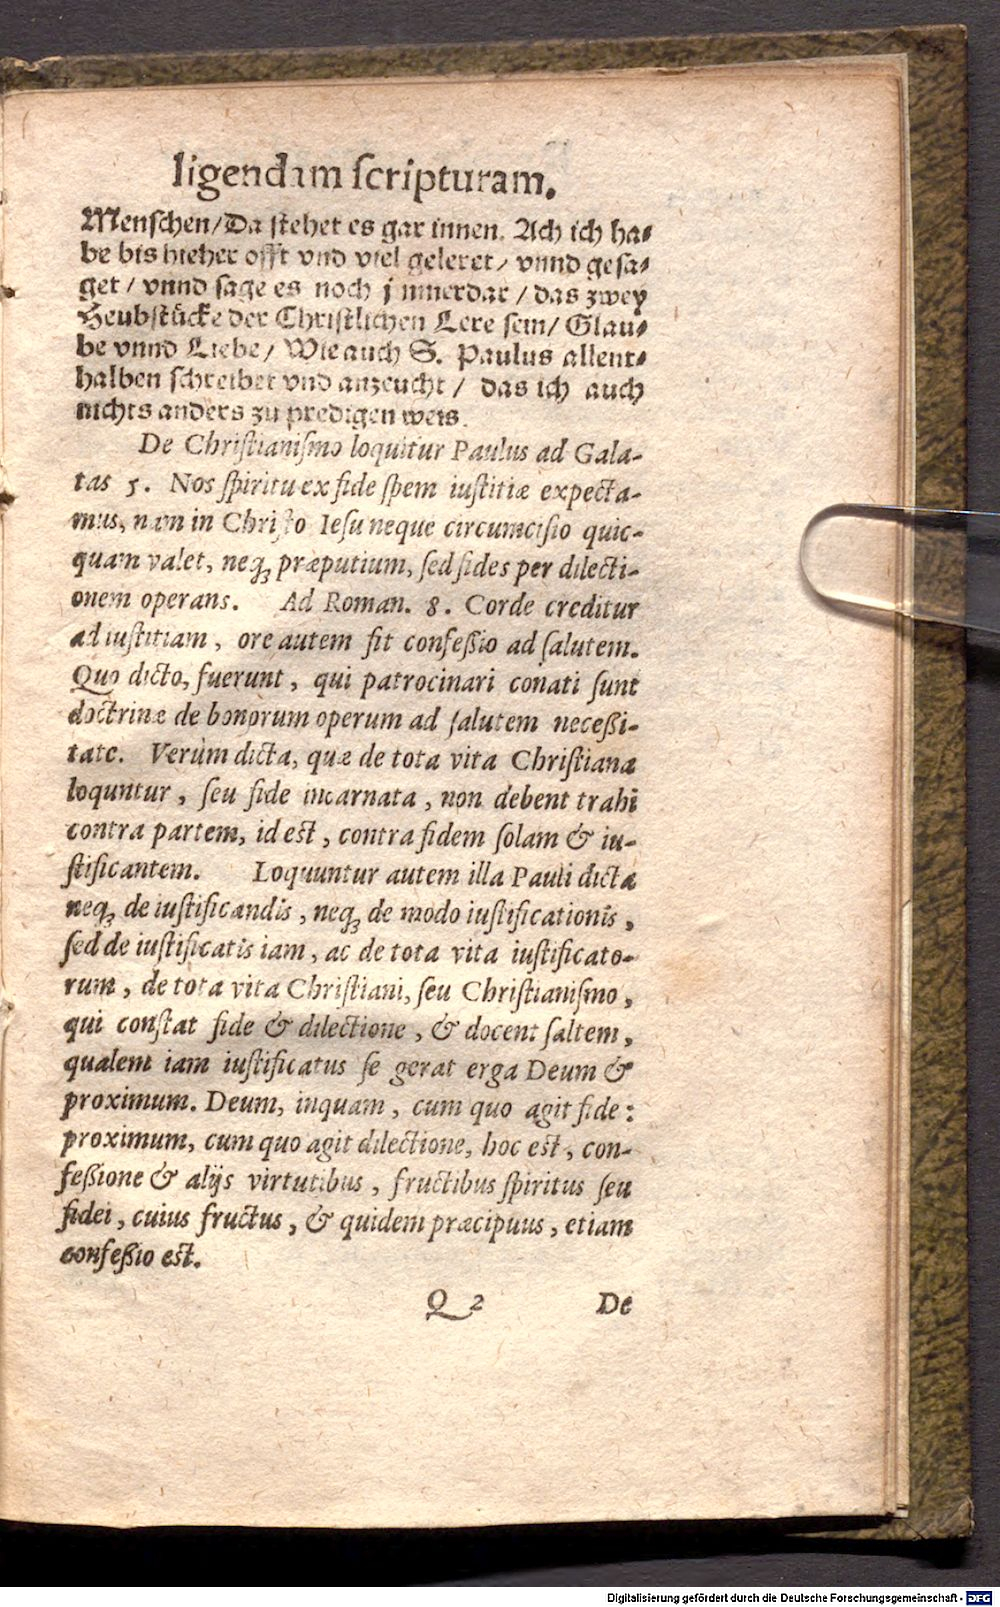 ligendam ſcripturam.
Menſchen/Da ſtehet es gar innen. Ach ich ha⸗
be bis hieher offt vnd viel geleret/ vnnd geſa⸗
get/ vnnd ſage es noch jmmerdar/ das zwey
Heubſtücke der Chriſtlichen Lere ſein/ Glau⸗
be vnnd Liebe/ Wie auch S. Paulus allent⸗
halben ſchreibet vnd anzeucht/ das ich auch
nichts anders zu predigen weis.
De Chriſtianiſmo loquitur Paulus ad Gala-
tas 5. Nos ſpiritu ex fide ſpem iuſtitiæ expecta-
mus, nam in Chriſto Ieſu neque circumciſio quic-
quam valet, neq; præputium, ſed fides per dilecti-
onem operans. Ad Roman. 8. Corde creditur
ad iuſtitiam, ore autem fit confeßio ad ſalutem.
Quo dicto, fuerunt, qui patrocinari conati ſunt
doctrinæ de bonorum operum ad ſalutem neceßi-
tate. Verùm dicta, quæ de tota vita Chriſtiana
loquntur, ſeu fide incarnata, non debent trahi
contra partem, id eſt, contra fidem ſolam & iu-
ſtificantem. Loquuntur autem illa Pauli dicta
neq; de iuſtificandis, neq; de modo iuſtificationis,
ſed de iuſtificatis iam, ac de tota vita iuſtificato-
rum, de tota vita Chriſtiani, ſeu Chriſtianiſmo,
qui conſtat fide & dilectione, & docent ſaltem,
qualem iam iuſtificatus ſe gerat erga Deum &
proximum. Deum, inquam, cum quo agit fide:
proximum, cum quo agit dilectione, hoc eſt, con-
feßione & alijs virtutibus, fructibus ſpiritus ſeu
fidei, cuius fructus, & quidem præcipuus, etiam
confeßio eſt.
Q 2 De
Digitalisierung gefördert durch die Deutsche Forschungsgemeinschaft - DFG